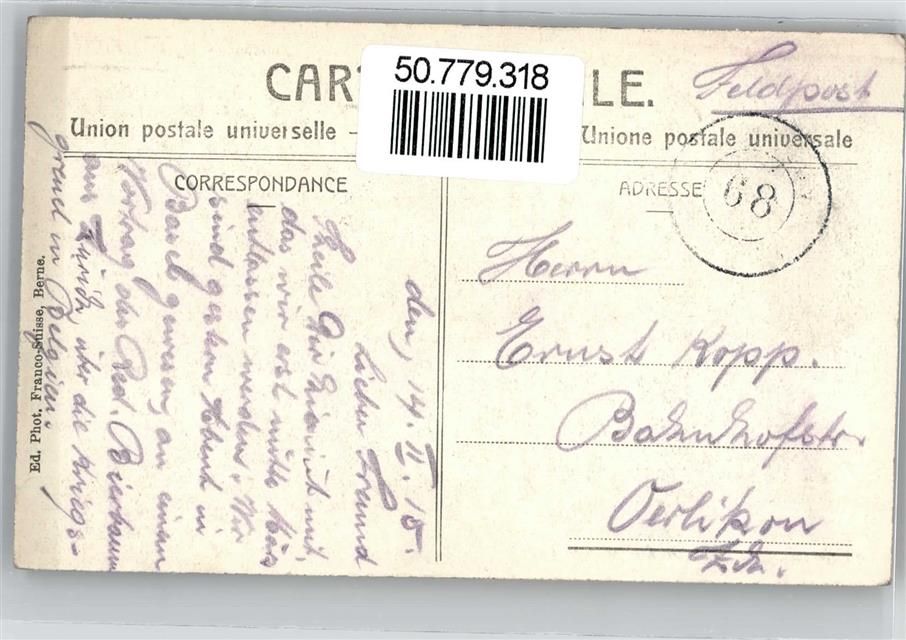 50.779.318
CART LE.
Feldpost
Union postale universelle – Unione postale universale
CORRESPONDANCE
ADRESSE
68
den, 14. II. 15.
Lieber Freund
Teile Dir hiermit mit,
das wir erst mitte März
entlassen werden. Wir
sind gestern Abend in
Basel gewesen, an einem
Vortrag des Red.
aus Zürich, über die Kriegs-
greuel in Belgien.
Herrn
Ernst Kopp.
Bahnhofstr.
Oerlikon
Zch.
Ed. Phot. Franco-Suisse, Berne.